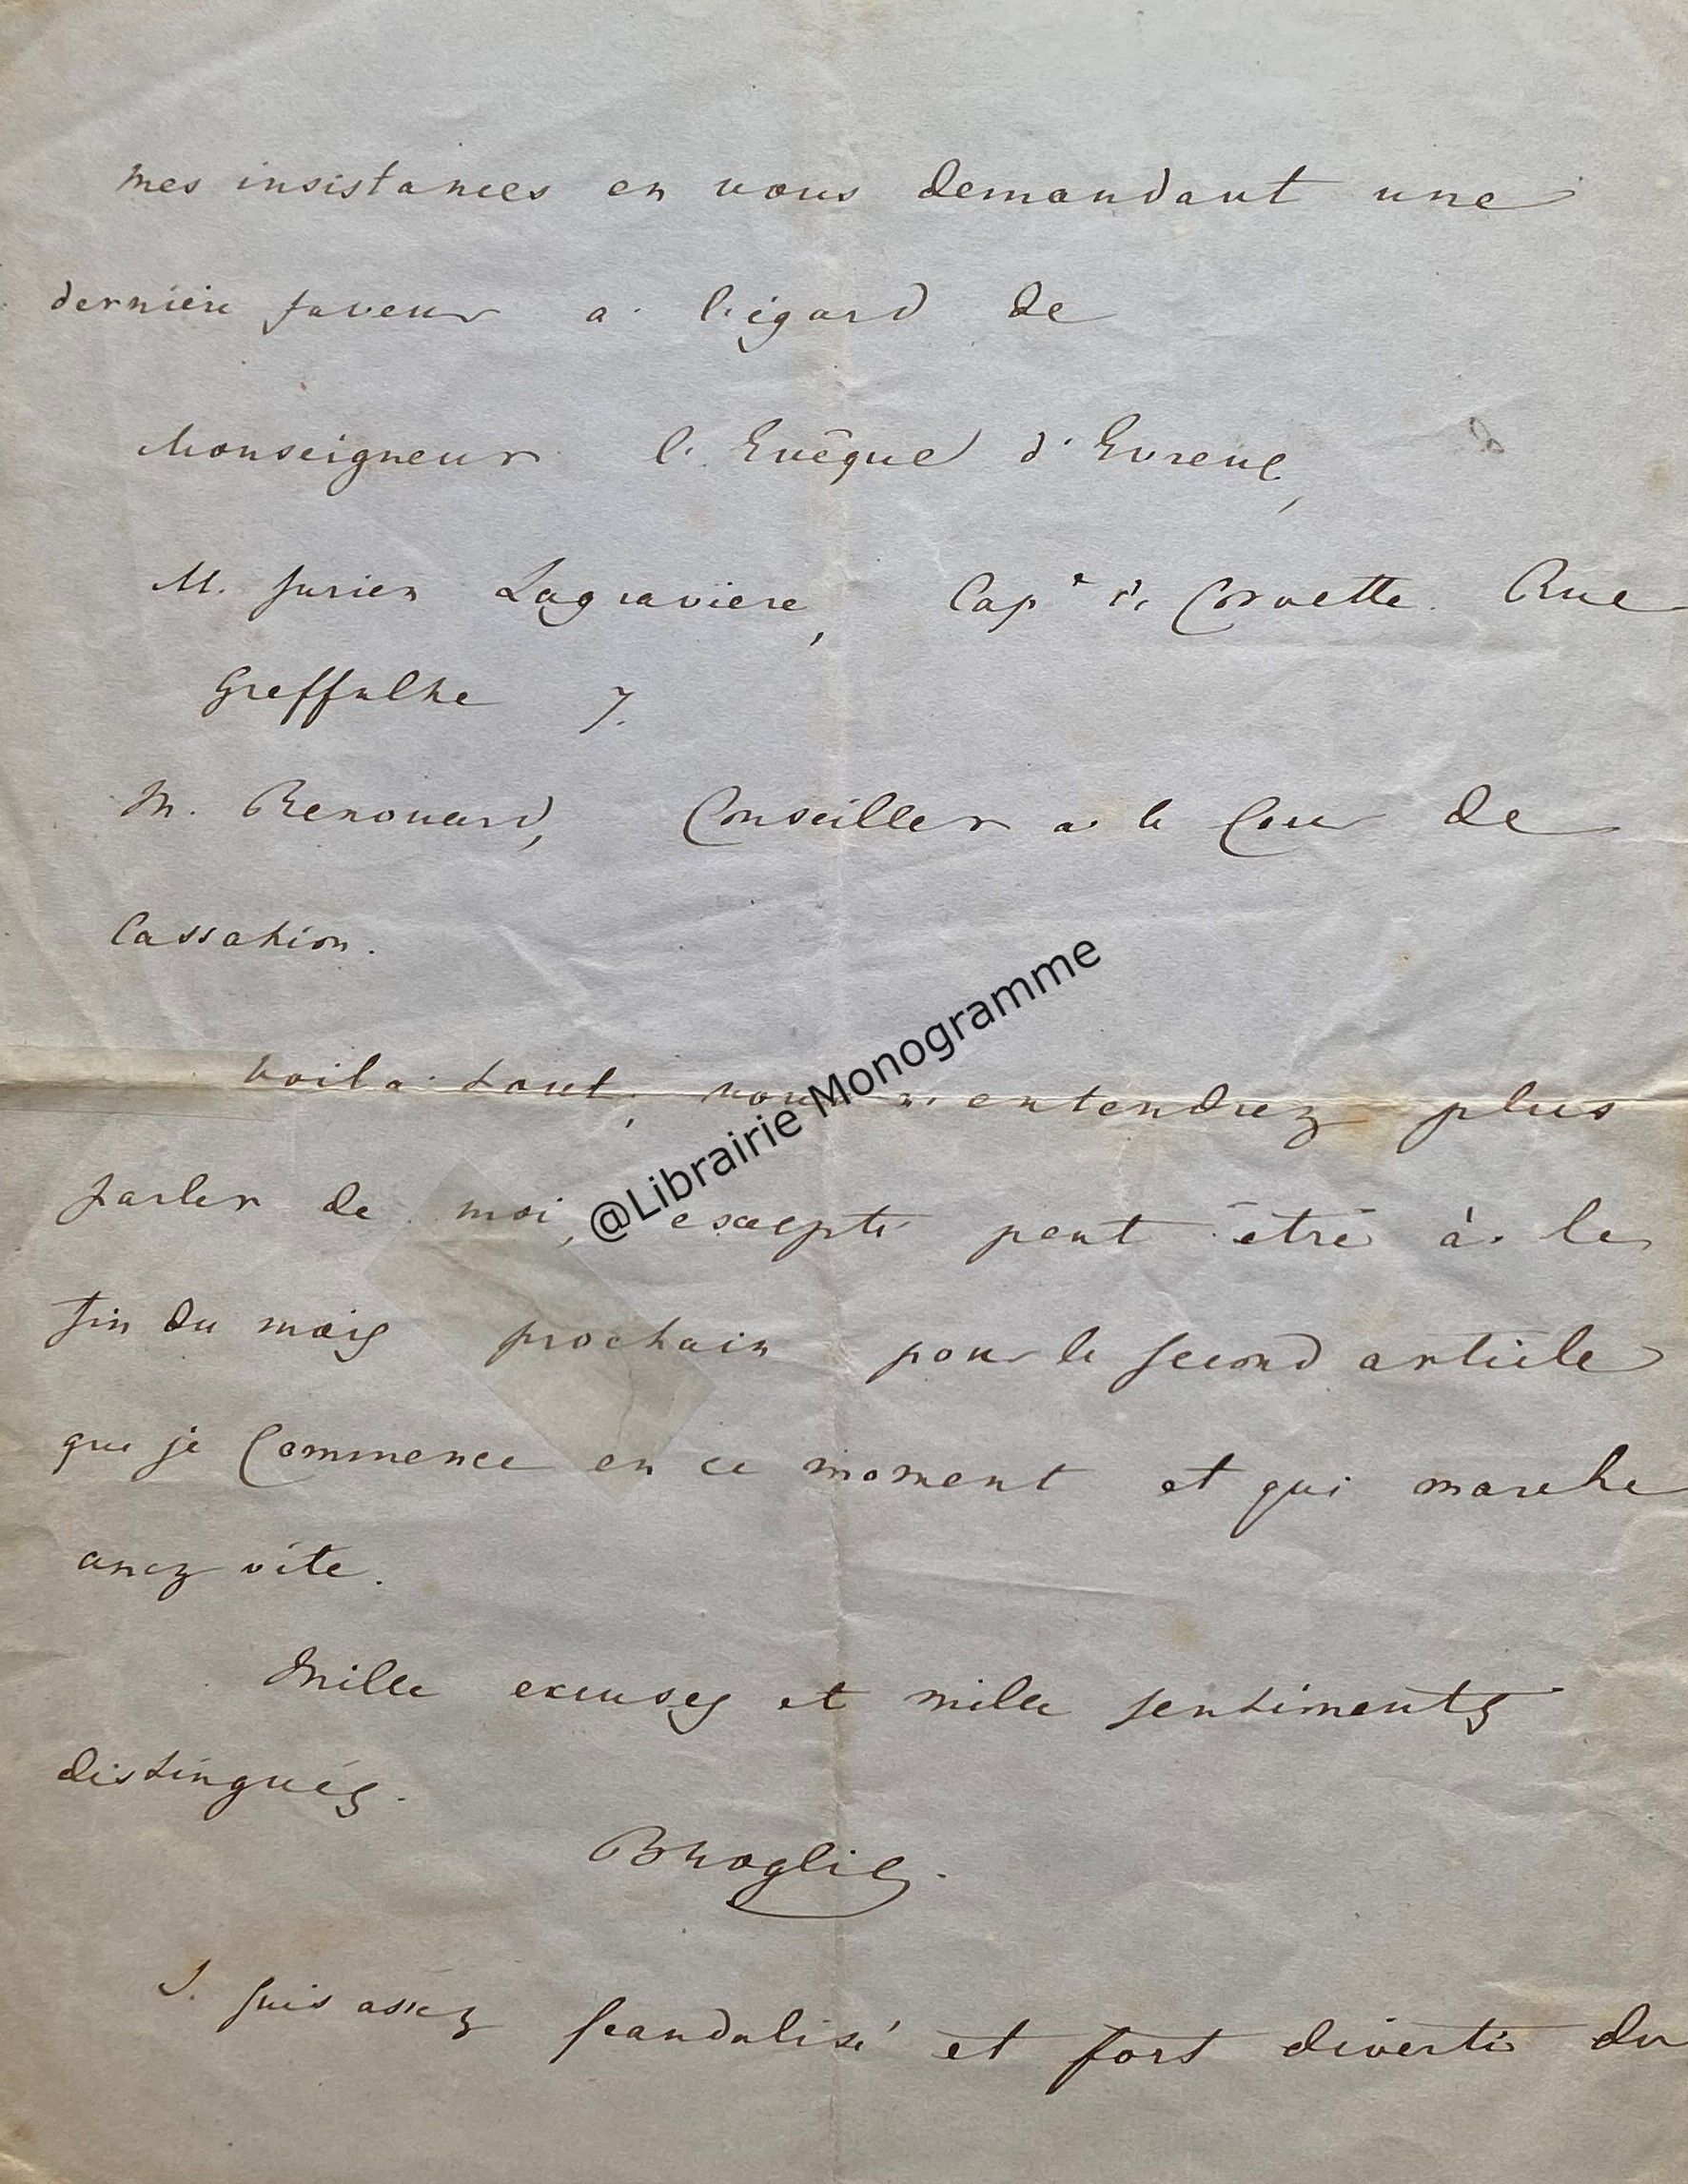 mes insistances en vous demandant une
dernière faveur a l'égard de
Monseigneur l'Evêque d'Evreux,
M. Jurien Lagravière, Cap^e de Corvette. Rue
Greffulhe 7.
M. Renouard, Conseiller a la Cour de
Cassation.
Voila tout, vous n'entendrez plus
parler de moi, excepté peut être à la
fin du mois prochain pour le second article
que je commence en ce moment et qui marche
assez vite.
Mille excuses et mille sentiments
distingués.
Broglie.
Je suis assez scandalisé et fort diverti du
@Librairie Monogramme